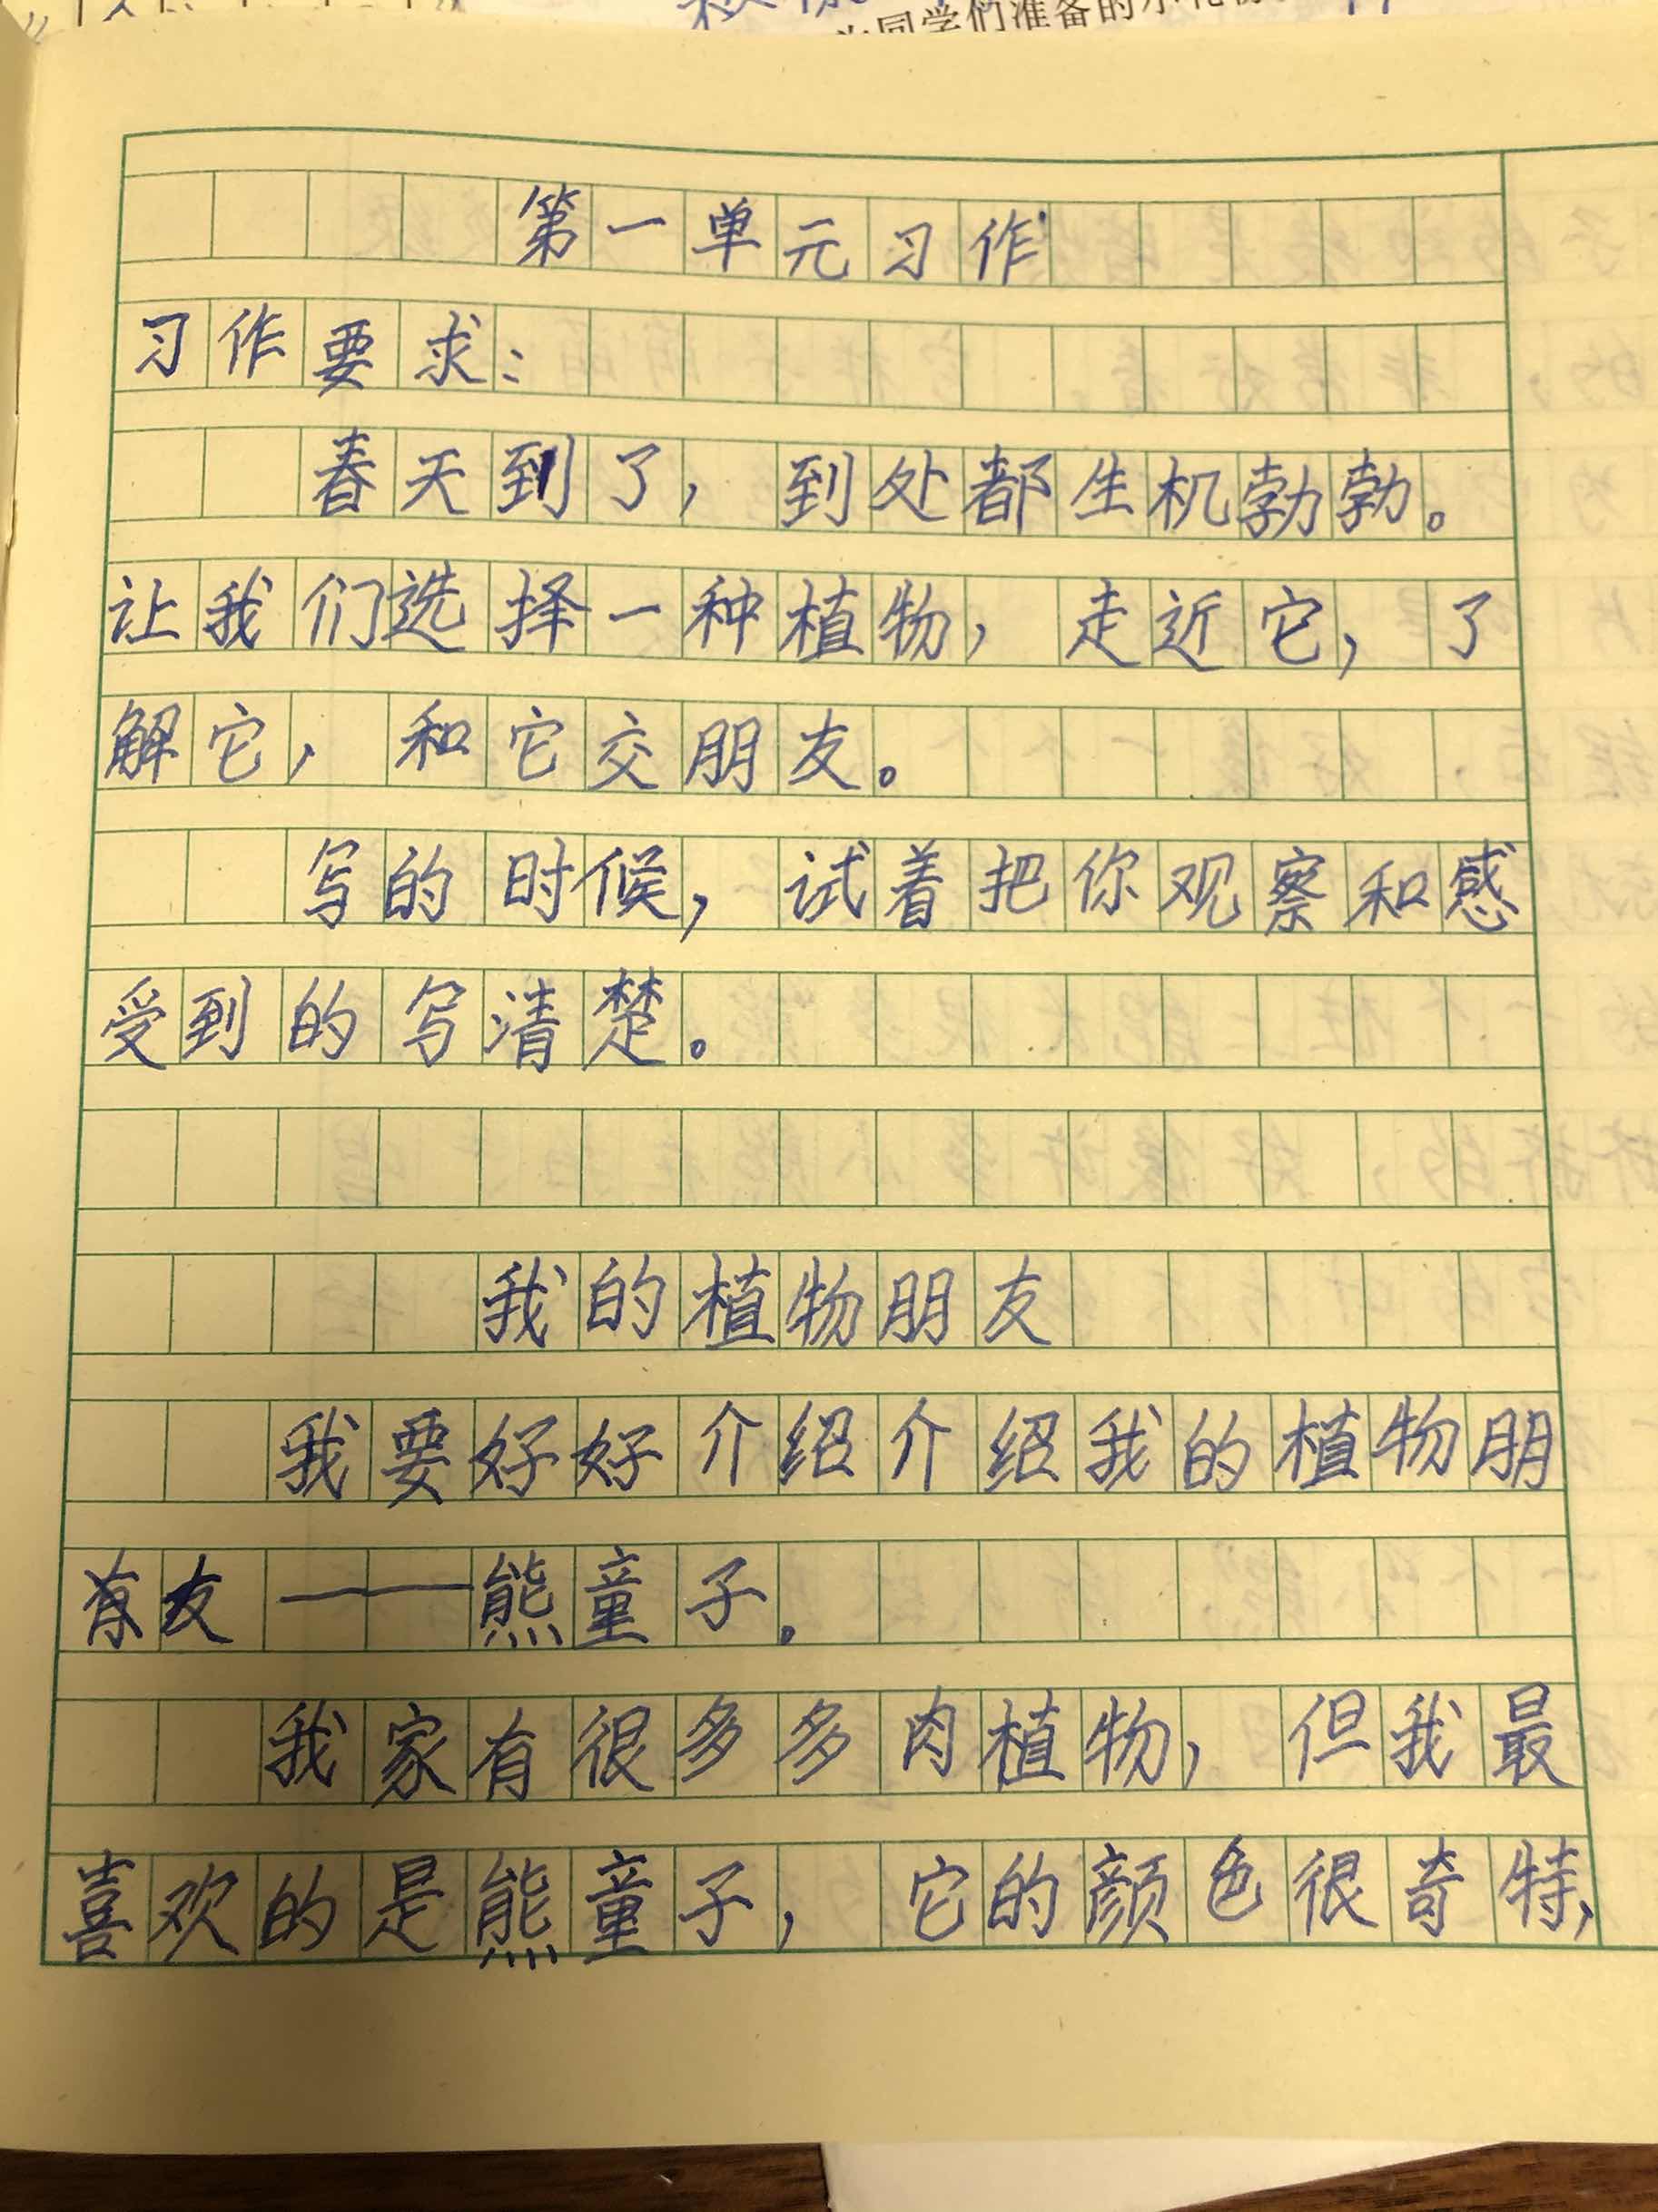 为同学们准备的
第一单元习作
习作要求：
春天到了，到处都生机勃勃。
让我们选择一种植物，走近它，了
解它，和它交朋友。
写的时候，试着把你观察和感
受到的写清楚。
我的植物朋友
我要好好介绍介绍我的植物朋
友——熊童子。
我家有很多多肉植物，但我最
喜欢的是熊童子，它的颜色很奇特，